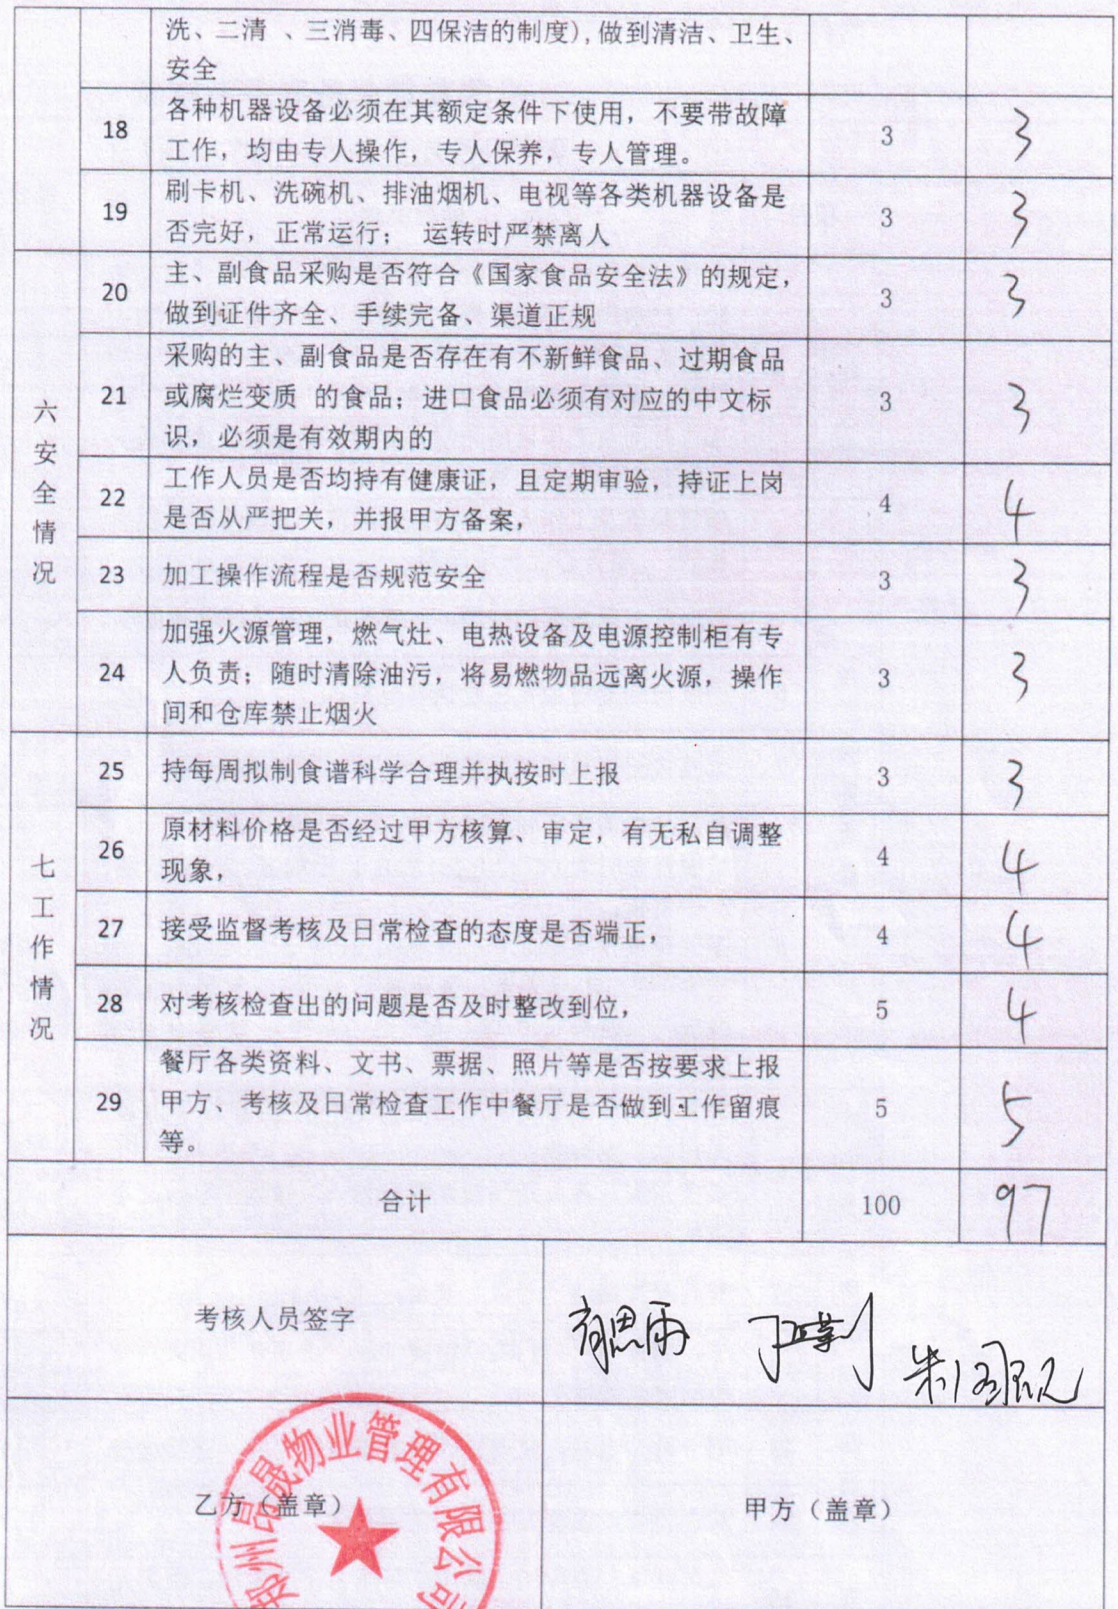 洗、二清 、三消毒、四保洁的制度),做到清洁、卫生、
安全
18 各种机器设备必须在其额定条件下使用，不要带故障
工作，均由专人操作，专人保养，专人管理。 3 3
19 刷卡机、洗碗机、排油烟机、电视等各类机器设备是
否完好，正常运行； 运转时严禁离人 3 3
六安全情况
20 主、副食品采购是否符合《国家食品安全法》的规定，
做到证件齐全、手续完备、渠道正规 3 3
21 采购的主、副食品是否存在有不新鲜食品、过期食品
或腐烂变质 的食品；进口食品必须有对应的中文标
识，必须是有效期内的 3 3
22 工作人员是否均持有健康证，且定期审验，持证上岗
是否从严把关，并报甲方备案， 4 4
23 加工操作流程是否规范安全 3 3
24 加强火源管理，燃气灶、电热设备及电源控制柜有专
人负责；随时清除油污，将易燃物品远离火源，操作
间和仓库禁止烟火 3 3
七工作情况
25 持每周拟制食谱科学合理并执按时上报 3 3
26 原材料价格是否经过甲方核算、审定，有无私自调整
现象， 4 4
27 接受监督考核及日常检查的态度是否端正， 4 4
28 对考核检查出的问题是否及时整改到位， 5 4
29 餐厅各类资料、文书、票据、照片等是否按要求上报
甲方、考核及日常检查工作中餐厅是否做到工作留痕
等。 5 5
合计 100 97
考核人员签字
乙方（盖章） 甲方（盖章）
郑州昂晟物业管理有限公司